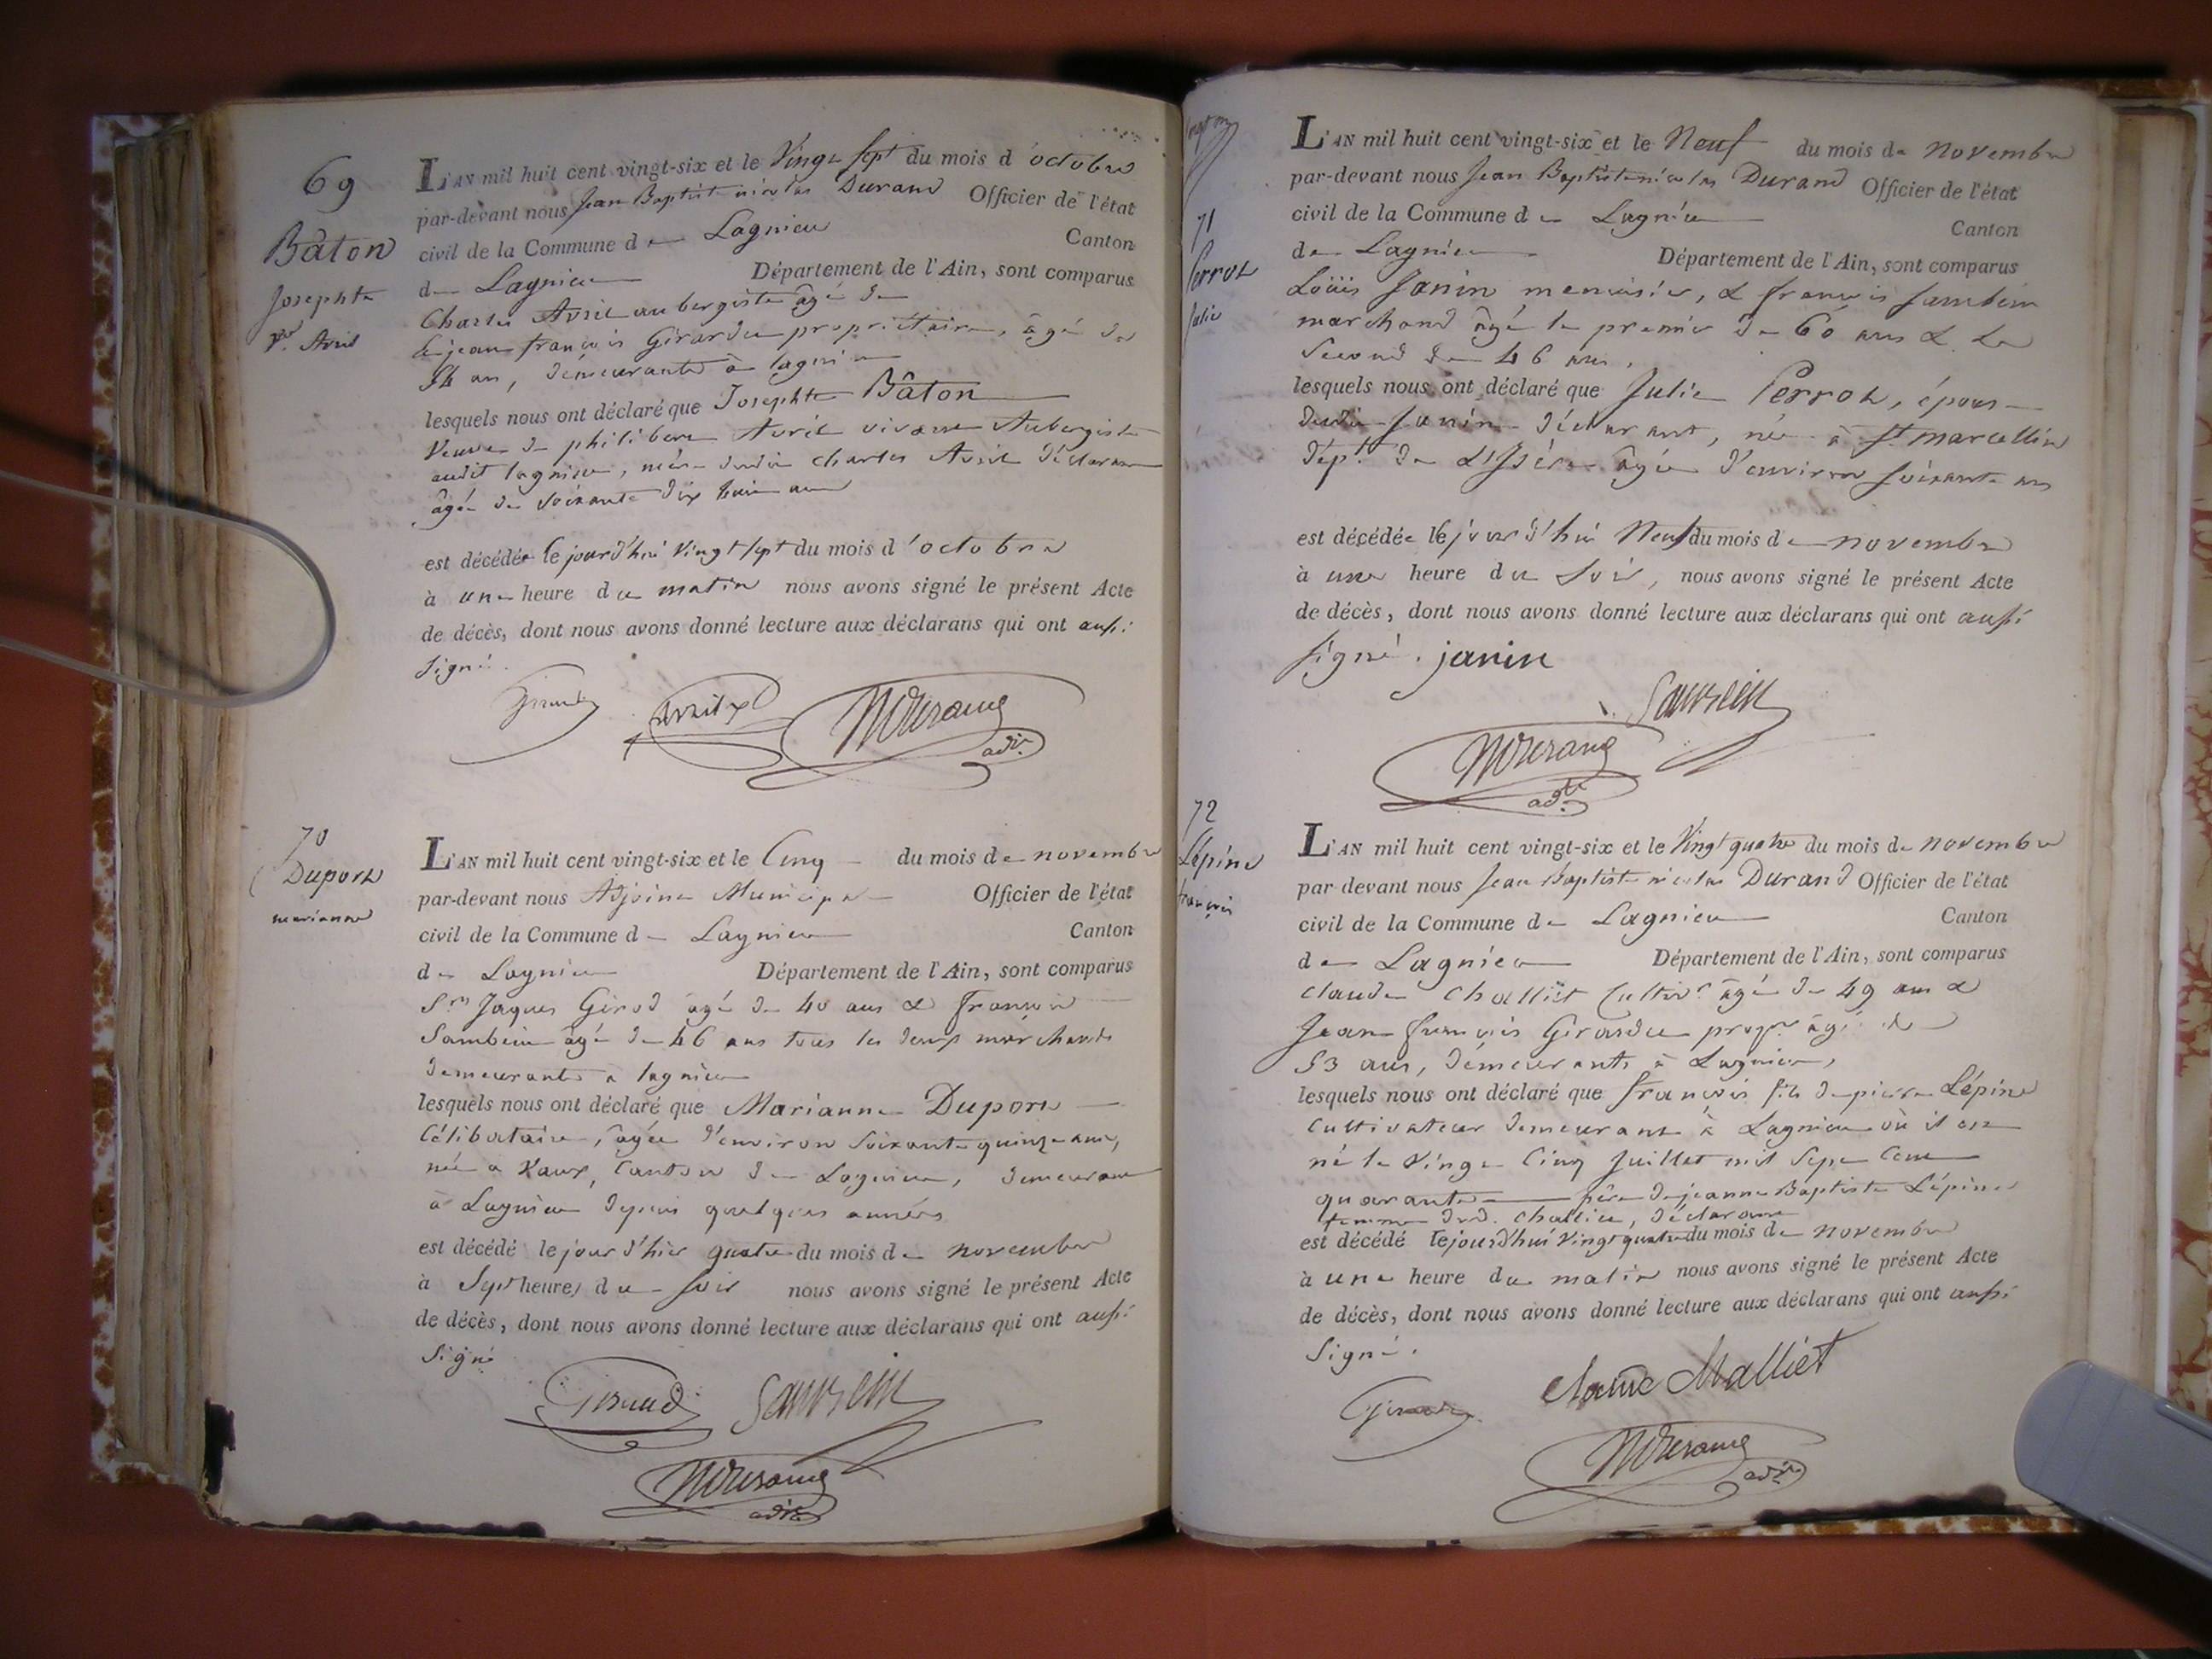 69
Bâton
Josephte
Vve Avril
L'AN mil huit cent vingt-six et le Vingt sept du mois d'octobre
par-devant nous Jean Baptiste nicolas Durand Officier de l'état
civil de la Commune de Lagnieu Canton
de Lagnieu Département de l'Ain, sont comparus
Charles Avril aubergiste âgé de
& jean françois Girardu propriétaire, âgé de
54 ans, demeurants à lagnieu
lesquels nous ont déclaré que Josephte Bâton
Veuve de philibert Avril vivant Aubergiste
audit lagnieu, mère dudit charles Avril déclarant
âgée de soixante dix huit ans
est décédée le jourd'hui Vingt sept du mois d'octobre
à une heure du matin nous avons signé le présent Acte
de décès, dont nous avons donné lecture aux déclarans qui ont aussi
signé.
avril
adjt
70
Duport
marianne
L'AN mil huit cent vingt-six et le Cinq du mois de novembre
par-devant nous Adjoint Municipal Officier de l'état
civil de la Commune de Lagnieu Canton
de Lagnieu Département de l'Ain, sont comparus
Srs Jaques Girod âgé de 40 ans & françois
Sambein âgé de 46 ans tous les deux marchands
demeurants à lagnieu
lesquels nous ont déclaré que Marianne Duport
Célibataire, âgée d'environ soixante quinze ans,
née à Vaux, Canton de Lagnieu, demeurant
à Lagnieu depuis quelques années
est décédé le jour d'hier quatre du mois de novembre
à Sept heures du soir nous avons signé le présent Acte
de décès, dont nous avons donné lecture aux déclarans qui ont aussi
signé
adjt
71
Perrot
Julie
L'AN mil huit cent vingt-six et le Neuf du mois de novembre
par-devant nous Jean Baptiste nicolas Durand Officier de l'état
civil de la Commune de Lagnieu Canton
de Lagnieu Département de l'Ain, sont comparus
Loüis Janin menuisier, & françois Sambein
marchand âgé le premier de 60 ans & le
second de 46 ans,
lesquels nous ont déclaré que Julie Perrot, épouse
dudit Janin déclarant, née à St marcellin
dépt de L'Isère âgée d'environ soixante ans
est décédée le jour d'hui Neuf du mois de novembre
à une heure du soir, nous avons signé le présent Acte
de décès, dont nous avons donné lecture aux déclarans qui ont aussi
signé. janin
adjt
72
Lépine
françois
L'AN mil huit cent vingt-six et le Vingt quatre du mois de novembre
par-devant nous Jean Baptiste nicolas Durand Officier de l'état
civil de la Commune de Lagnieu Canton
de Lagnieu Département de l'Ain, sont comparus
Claude Challiet Cultivr âgé de 49 ans &
Jean françois Girardu propre âgé de
53 ans, demeurants à Lagnieu,
lesquels nous ont déclaré que françois fils de pierre Lépine
Cultivateur demeurant à Lagnieu où il est
né le Vingt Cinq Juillet mil Sept Cent
quarante père de jeanne Baptiste Lépine
femme dud. Challiet, déclarant
est décédé le jourd'hui Vingt quatre du mois de novembre
à une heure du matin nous avons signé le présent Acte
de décès, dont nous avons donné lecture aux déclarans qui ont aussi
signé.
adjt